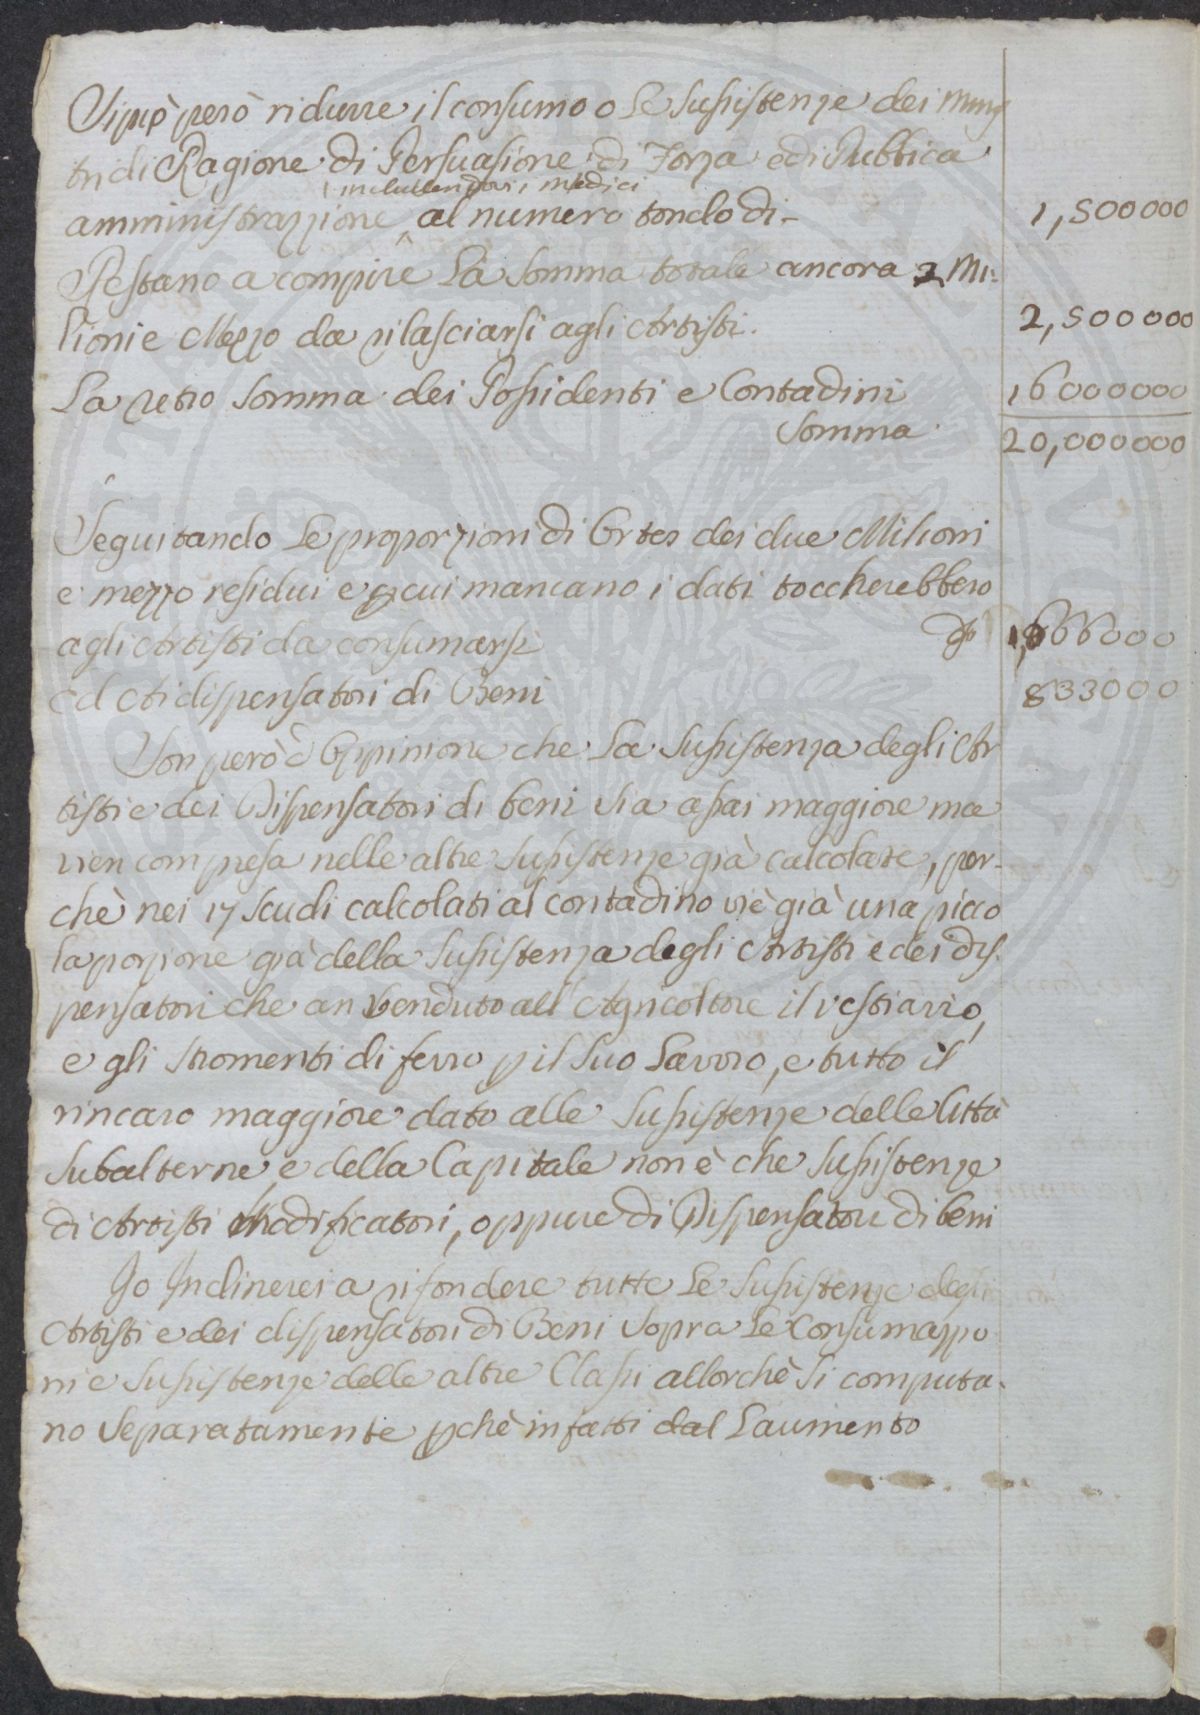 Si può però ridurre il consumo o le sussistenze dei Minis
tri di Ragione di Persuasione di Forza e di Pubblica
includendovi i medici
amministrazzione al numero tondo di- 1,500000
Restano a compire La somma totale ancora 2 Mi-
lioni e Mezzo da rilasciarsi agli Artisti. 2,500000
La retro Somma dei Possidenti e Contadini 16000000
Somma 20,000000
Seguitando Le proporzioni di Ortes dei due Milioni
e mezzo residui e p cui mancano i dati toccherebbero
agli Artisti da consumarsi 1,666000
ed Ai dispensatori di Beni 833000
Son però d'Oppinione che La Sussistenza degli Ar
tisti e dei Dispensatori di beni sia assai maggiore ma
vien compresa nelle altre sussistenze già calcolate, per-
chè nei 17 scudi calcolati al contadino v'è già una picco
la porzione già della Sussistenza degli Artisti e dei dis-
pensatori che an venduto all'Agricoltore il vestiario,
e gli stromenti di ferro p il suo Lavoro, e tutto il
rincaro maggiore dato alle Sussistenze delle Città
subalterne, e della Capitale non è che sussistenze
di Artisti Modificatori, oppure di Dispensatori di beni
Jo Inclinerei a rifondere tutte Le Sussistenze degli
Artisti e dei dispensatori di Beni sopra Le Consumazzio
ni e sussistenze delle altre Classi allorchè si computa-
no Separatamente pchè infatti dal L'aumento